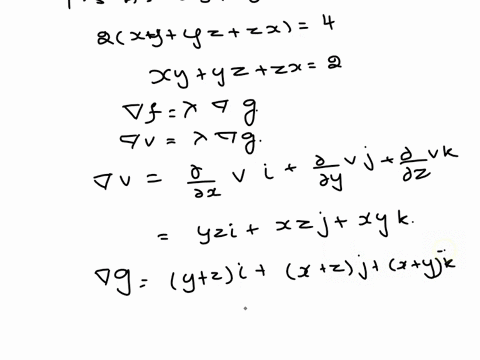 2(xy+yz+zx) = 4
xy+yz+zx = 2
∇f = λ ∇ g
∇v = λ ∇g.
∇v = ∂/∂x v i + ∂/∂y v j + ∂/∂z v k
= yzi + xzj + xyk.
∇g = (y+z)i + (x+z)j + (x+y)k